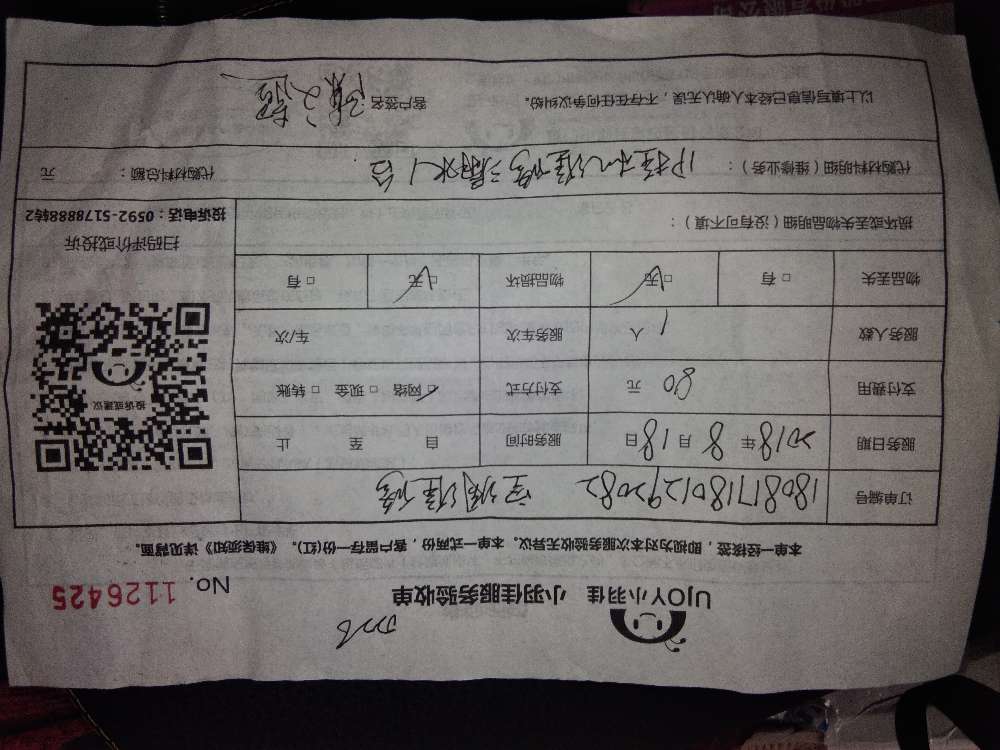 UJOY小羽佳 小羽佳服务验收单
No. 1126425
本单一经核签，即视为对本次服务验收无异议。本单一式两份，客户留存一份(红)。《维保须知》详见背面。
订单编号 1808171801292082 空调维修
服务日期 2018年8月18日 服务时间 自 至 止
支付费用 80元 支付方式 ☑网络 □现金 □转账
服务人数 1人 服务车次 车/次
物品丢失 □有 ☑无 物品损坏 ☑无 □有
损坏或丢失物品明细（没有可不填）：
投诉或建议
扫码评价或投诉
投诉电话：0592-5178888转2
代购材料明细（维修业务）： 1P挂机维修漏水1台
代购材料总额： 元
以上填写信息已经本人确认无误，不存在任何争议纠纷。 客户签名